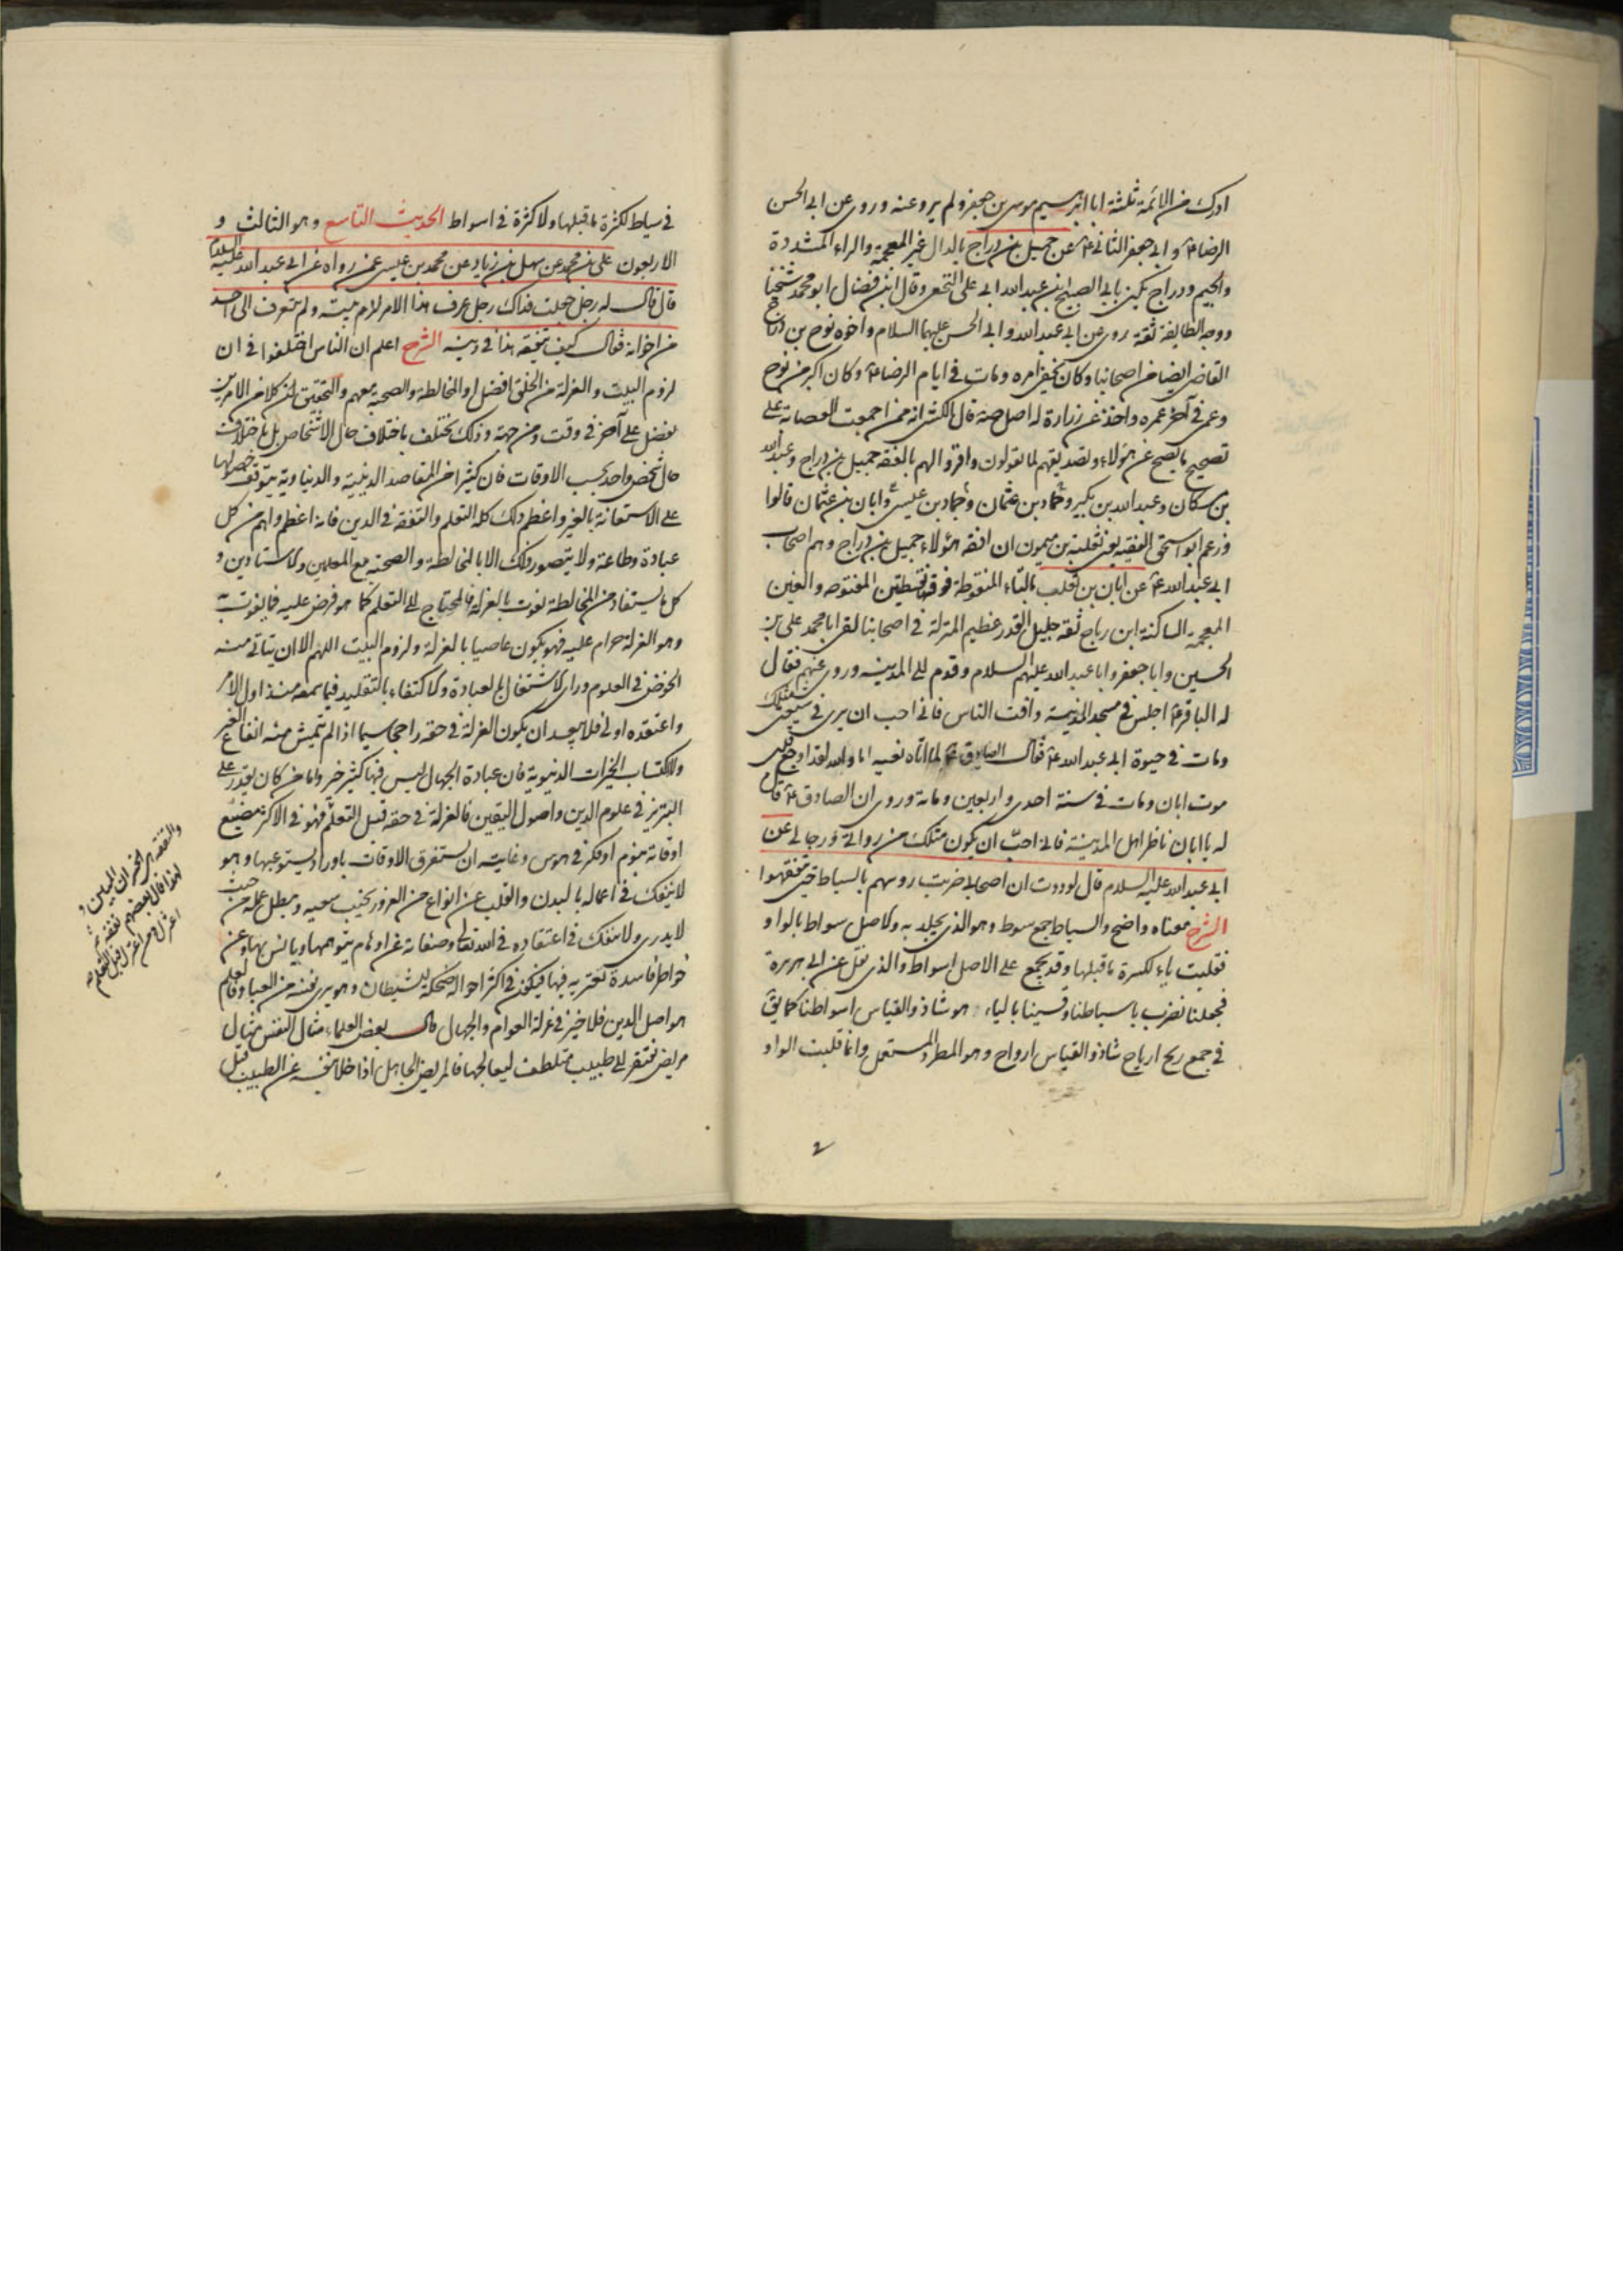 ادرك من الائمة ثلثة ابا ابرهيم موسى بن جعفر ولم يرو عنه وروى عن ابى الحسن
الرضا ع وابى جعفر الثانى ع عن جميل بن دراج بالدال غير المعجمة والراء المشددة
والجيم ودراج يكنى بابى الصبيح بن عبد الله ابى على النخعى وقال ابن فضال ابو محمد شيخنا
ووجه الطايفة ثقة روى عن ابى عبد الله وابى الحسن عليهما السلام واخوه نوح بن دراج
القاضى ايضا من اصحابنا وكان يخفى امره ومات فى ايام الرضا ع وكان اكبر من نوح
وعمى فى آخر عمره واخذ عن زرارة له اصل صه قال الكشى انه ممن اجمعت العصابة على
تصحيح ما يصح عن هؤلاء وتصديقهم لما يقولون واقروا لهم بالفقه جميل بن دراج وعبد الله
بن مسكان وعبد الله بن بكير وحماد بن عثمان وحماد بن عيسى وابان بن عثمان قالوا
وزعم ابو اسحق الفقيه يعنى ثعلبة بن ميمون ان افقه هؤلاء جميل بن دراج وهم اصحاب
ابى عبد الله ع عن ابان بن تغلب بالتاء المنقوطة فوقها نقطتين المفتوحه والغين
المعجمة الساكنة ابن رباح ثقة جليل القدر عظيم المنزلة فى اصحابنا لقى ابا محمد على بن
الحسين وابا جعفر وابا عبد الله عليهم السلام وقدم الى المدينه وروى عنهم فقال
له الباقر ع اجلس فى مسجد المدينة وافت الناس فانى احب ان يرى فى شيعتى مثلك
ومات فى حيوة ابى عبد الله ع فقال الصادق ع لما اتاه نعيه اما والله لقد اوجع قلبى
موت ابان ومات فى سنة احدى واربعين ومائة وروى ان الصادق ع قال
له يا ابان ناظر اهل المدينة فانى احب ان يكون مثلك من رواتى ورجالى عن
ابى عبد الله عليه السلام قال لوددت ان اصحابى ضربت روسهم بالسياط حتى يتفقهوا
الشرح معناه واضح والسياط جمع سوط وهو الذى يجلد به والاصل سواط بالواو
فقلبت ياء لكسرة ما قبلها وقد يجمع على الاصل اسواط والذى نقل عن ابى هريرة
فجعلنا نضرب باسياطنا وقسينا بالياء هو شاذ والقياس اسواطنا كما يق
فى جمع ريح ارياح شاذ والقياس ارواح وهو المطرد المستعمل وانما قلبت الواو
فى سياط لكثرة ما قبلها ولا كثرة فى اسواط الحديث التاسع وهو الثالث و
الاربعون على بن محمد عن سهل بن زياد عن محمد بن عيسى عمن رواه عن ابى عبد الله عليه السلام
قال قال له رجل جعلت فداك رجل عرف هذا الامر لزم بيته ولم يتعرف الى احد
من اخوانه فقال كيف يتفقه هذا فى دينه الشرح اعلم ان الناس اختلفوا فى ان
لزوم البيت والعزلة من الخلق افضل او المخالطة والصحبة معهم والتحقيق ان كلا من الامرين
يفضل على آخر فى وقت ومن جهة وذلك يختلف باختلاف حال الاشخاص بل باختلاف
حال شخص واحد بحسب الاوقات فان كثيرا من المقاصد الدينية والدنياوية يتوقف حصولها
على الاستعانة بالغير واعظم ذلك كله التعلم والتفقه فى الدين فانه اعظم واهم من كل
عبادة وطاعة ولا يتصور ذلك الا بالمخالطة والصحبة مع المعلمين والاستادين و
كل ما يستفاد من المخالطة يفوت بالعزلة فالمحتاج الى التعلم كما هو فرض عليه فما يفوت به
وهو العزلة حرام عليه فهو يكون عاصيا بالعزلة ولزوم البيت اللهم الا ان يتاتى منه
الخوض فى العلوم وراى الاشتغال بالعبادة والاكتفاء بالتقليد فيما سمعه منذ اول الامر
واعتقده اولى فلا يبعد ان يكون العزلة فى حقه راجحا سيما اذا لم يتمش منه انفاع الغير
والاكتساب الخيرات الدنيوية فان عبادة الجهال ليس فيها كثير خير واما من كان يقدر على
التبرز فى علوم الدين واصول اليقين فالعزلة فى حقه قبل التعلم فهو فى الاكثر مضيع
اوقاته بنوم او فكر فى هوس وغايته ان يستغرق الاوقات باوراد يستوعبها وهو
لا ينفك فى اعماله بالبدن والقلب عن انواع من الغرور يخيب سعيه ويبطل عمله من حيث
لا يدرى ولا ينفك فى اعتقاده فى الله تعالى وصفاته عن اوهام يتوهمها ويانس بها وعن
خواطر فاسدة تعتريه فيها فيكون فى اكثر احواله ضحكة للشيطان وهو يرى نفسه من العباد فالعلم
هو اصل الدين فلا خير فى عزلة العوام والجهال قال بعض العلماء مثال النفس مثال
مريض يفتقر الى طبيب متلطف ليعالجها فالمريض الجاهل اذا خلا بنفسه عن الطبيب قبل
لهذا قال بعضهم تفقه ثم